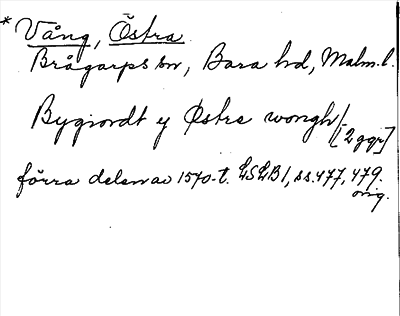 * Vång, Östra
Brågarps sn, Bara hd, Malm.l.
Bygiordt y Østre wongh/ [2 ggr]
förra delen av 1570-t. LSLB1, ss. 477, 479.
orig.